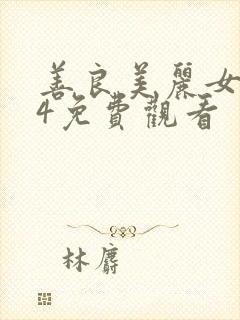 善良美麗女
4免費觀看
林麝